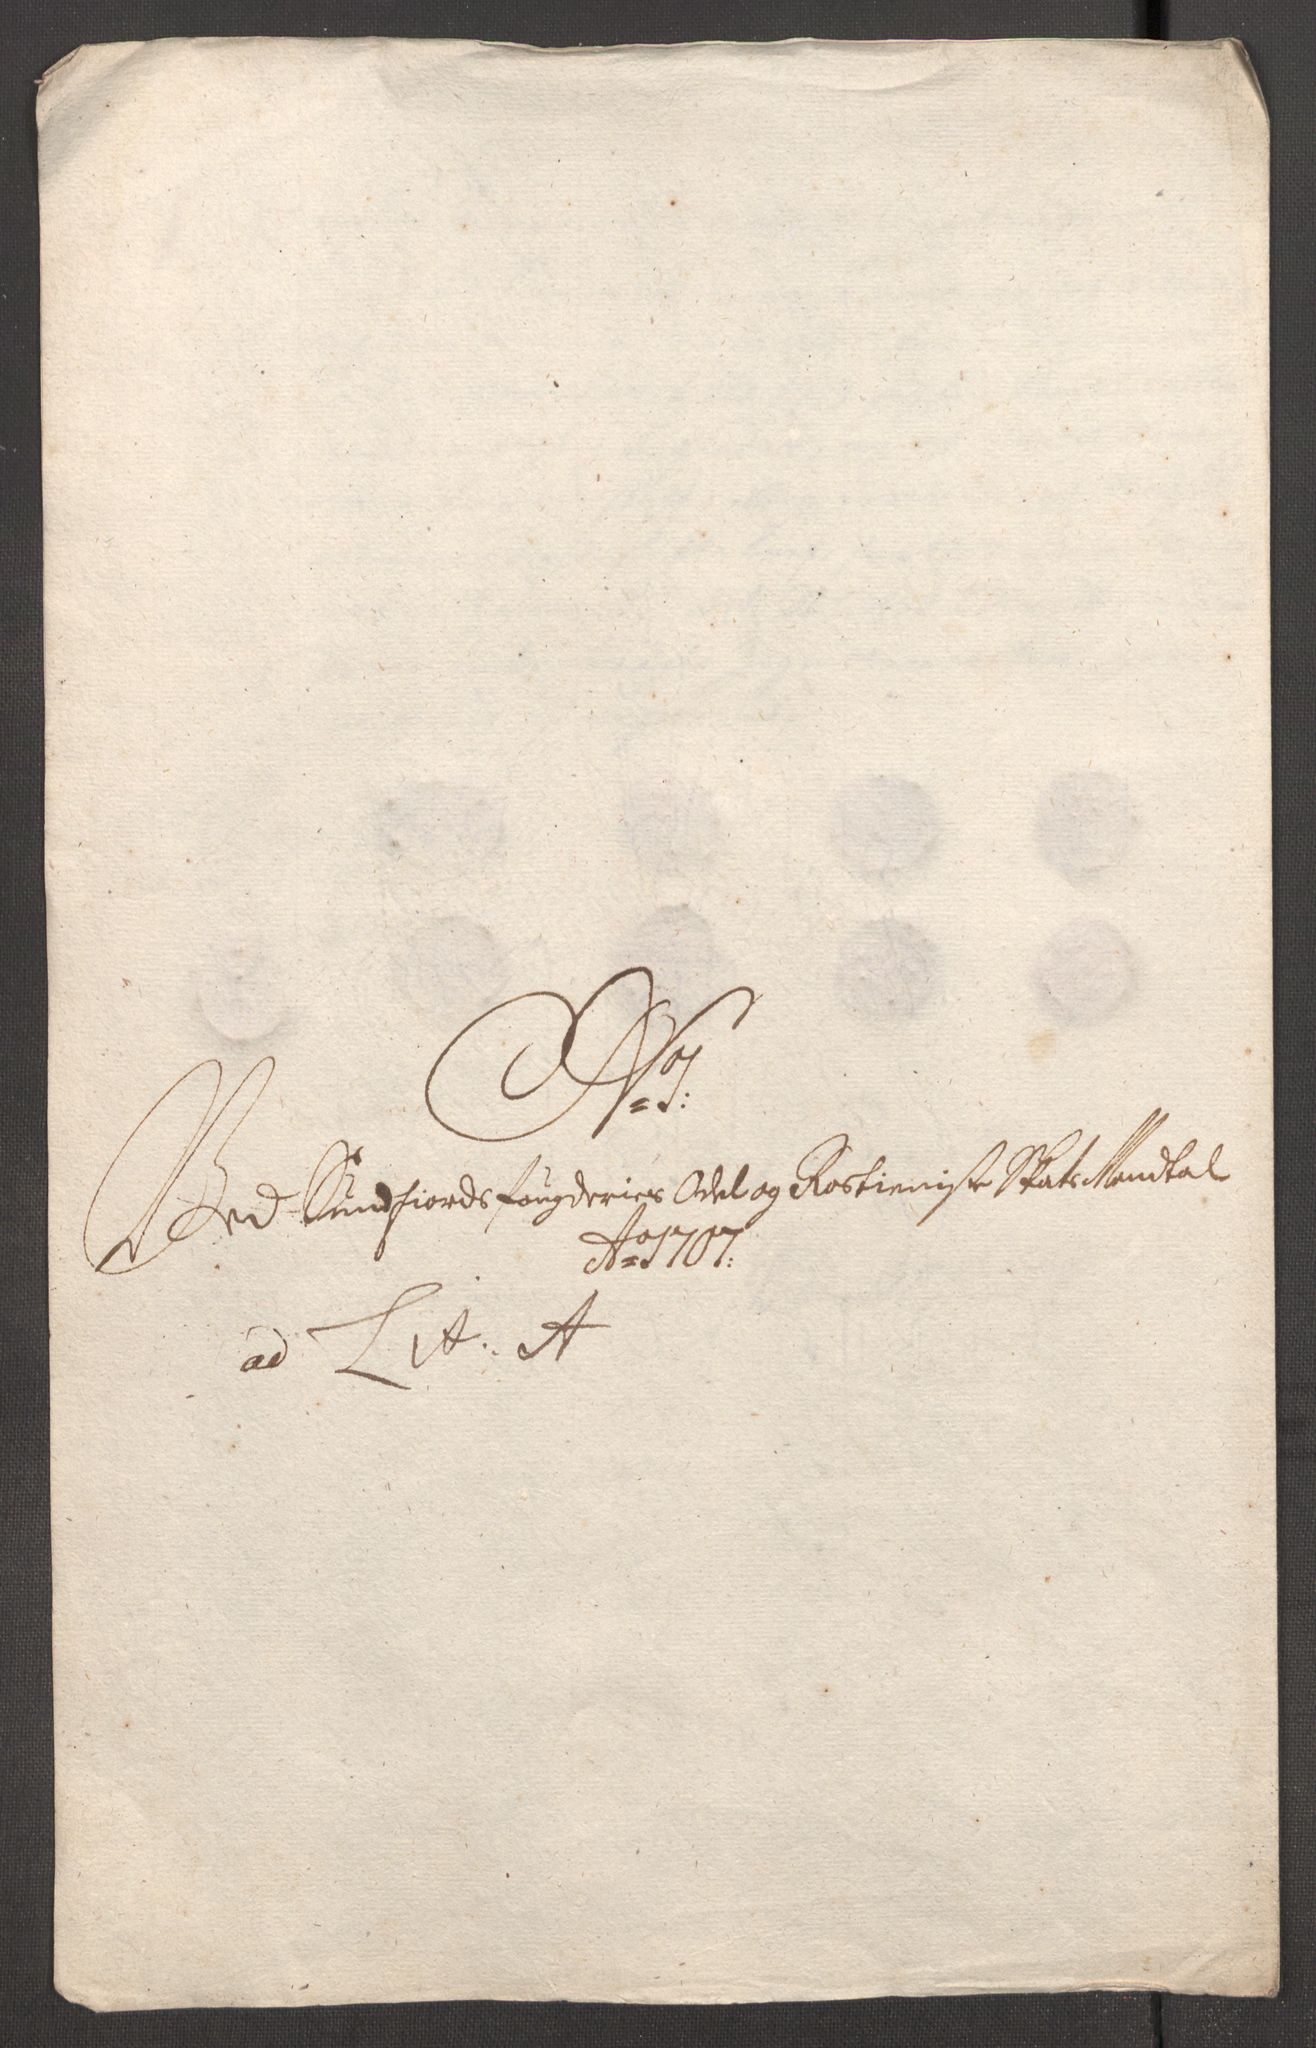 No 1:
Ved Sundfiords fougderies Odel og Rostieniste Skats Mandtal
Ao 1707:
ad Lit: A